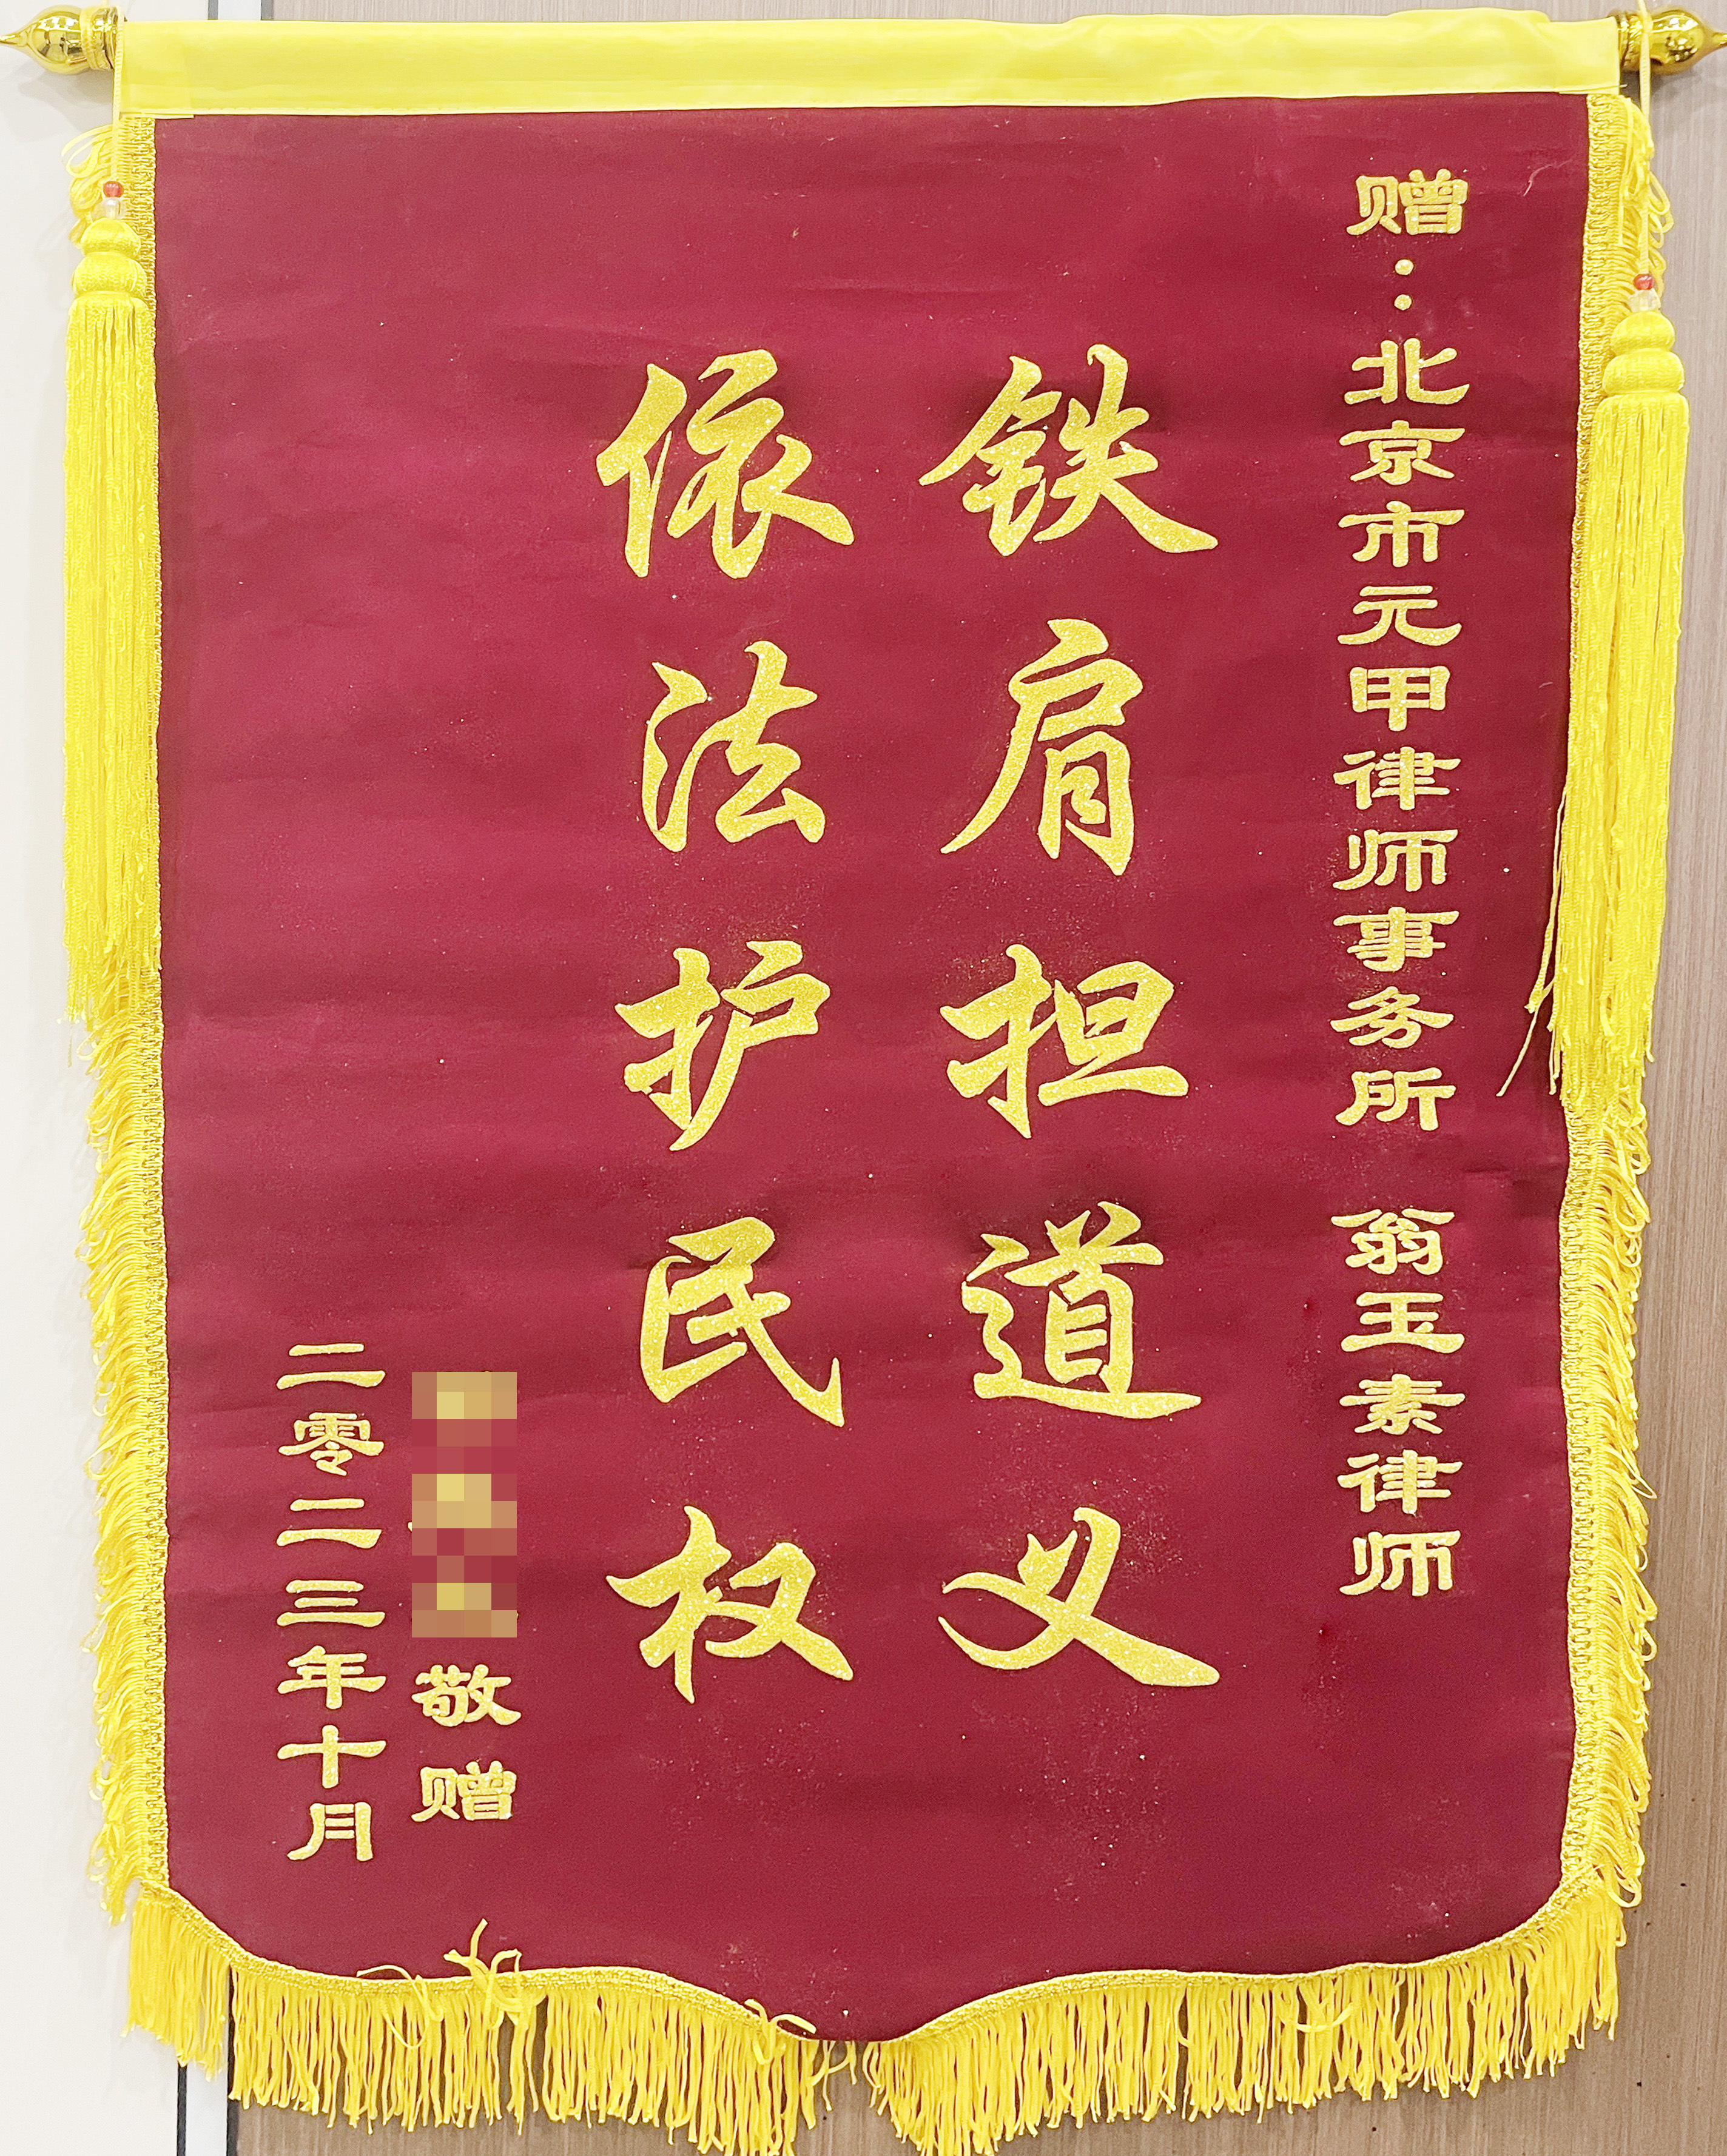 赠：北京市元甲律师事务所 翁玉素律师
铁肩担道义
依法护民权
敬赠
二零二三年十月